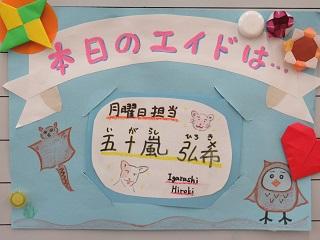 本日のエイドは…
月曜日担当
いがらし ひろき
五十嵐 弘希
Igarashi
Hiroki